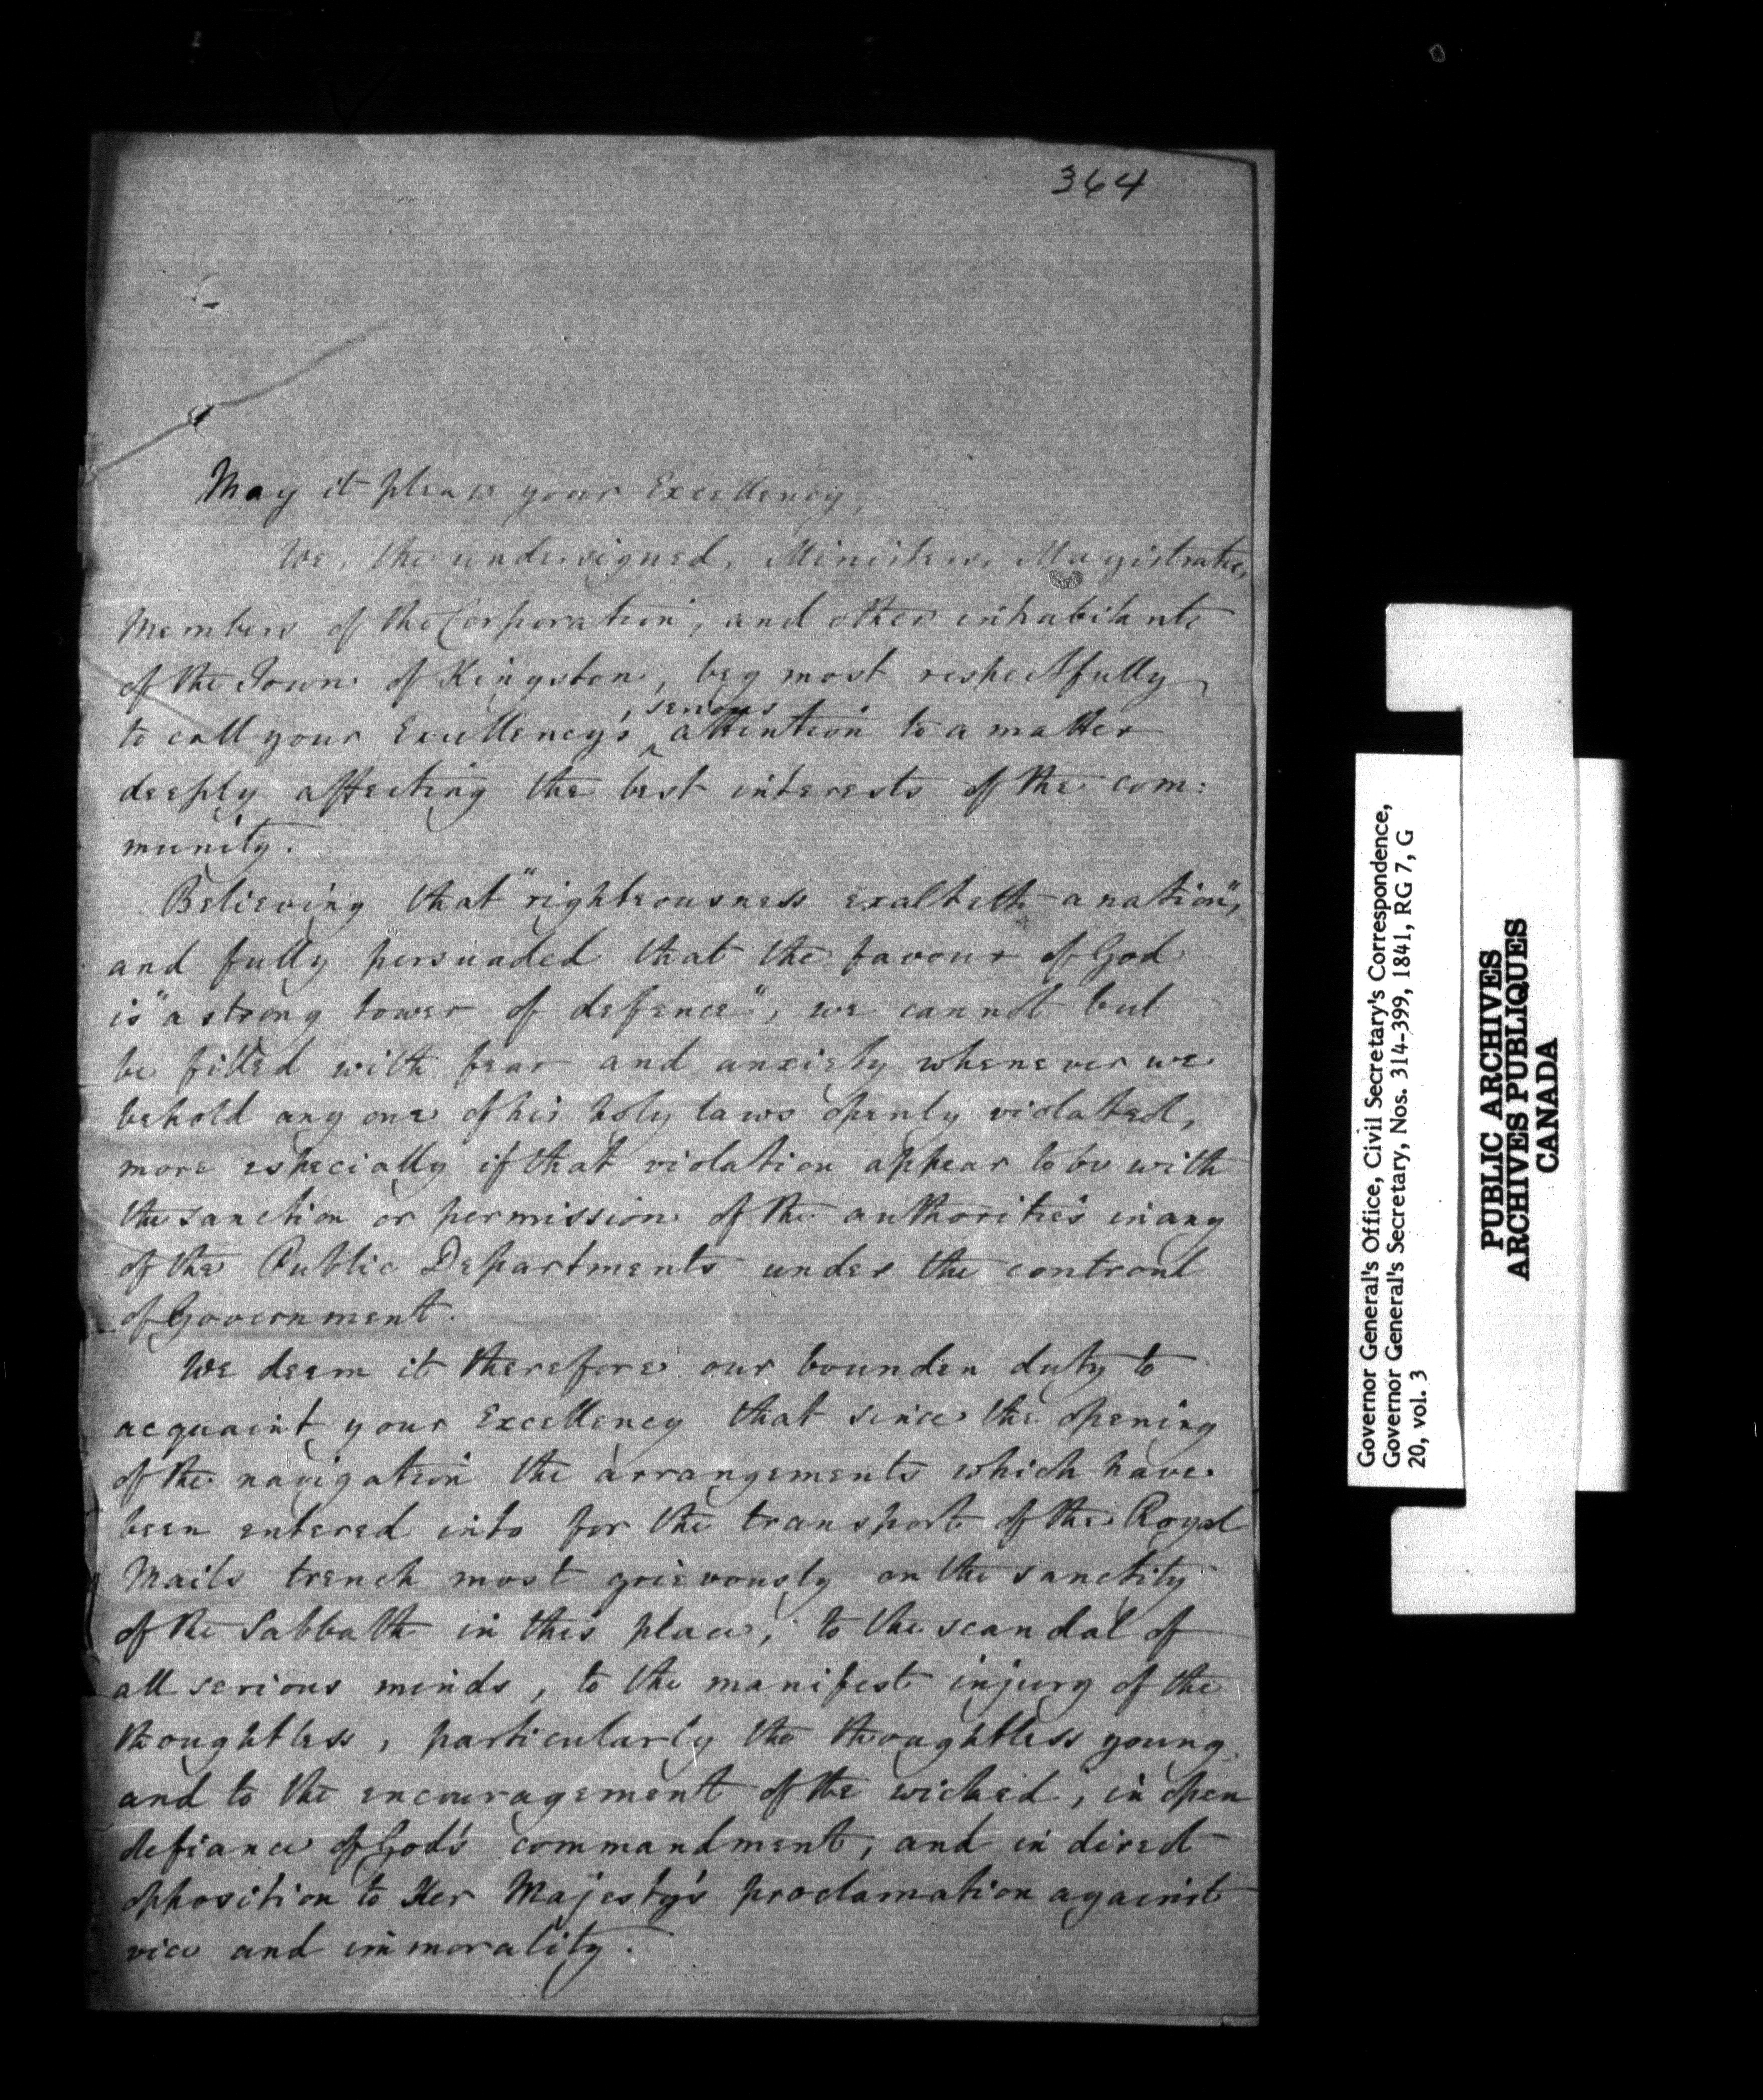 364
May it please your Excellency,
We, the undersigned, Ministers, Magistrates,
Members of the Corporation, and other inhabitants
of the Town of Kingston, beg most respectfully
serious
to call your Excellency's, attention to a matter
deeply affecting the best interests of the com:
munity.
Believing that "righteousness exalteth a nation",
and fully persuaded that the favour of God
is "a strong tower of defence", we cannot but
be filled with fear and anxiety whenever we
behold any one of his holy laws openly violated,
more especially if that violation appear to be with
the sanction or permission of the authorities in any
of the Public Departments under the controul
of Government.
We deem it therefore our bounden duty to
acquaint your Excellency that since the opening
of the navigation the arrangements which have
been entered into for the transport of the Royal
Mails trench most grievously on the sanctity
of the Sabbath in this place, to the scandal of
all serious minds, to the manifest injury of the
thoughtless, particularly the thoughtless young,
and to the encouragement of the wicked, in open
defiance of God's commandment, and in direct
opposition to Her Majesty's proclamation against
vice and immorality.
Governor General's Office, Civil Secretary's Correspondence,
Governor General's Secretary, Nos. 314-399, 1841, RG 7, G
20, vol. 3
PUBLIC ARCHIVES
ARCHIVES PUBLIQUES
CANADA